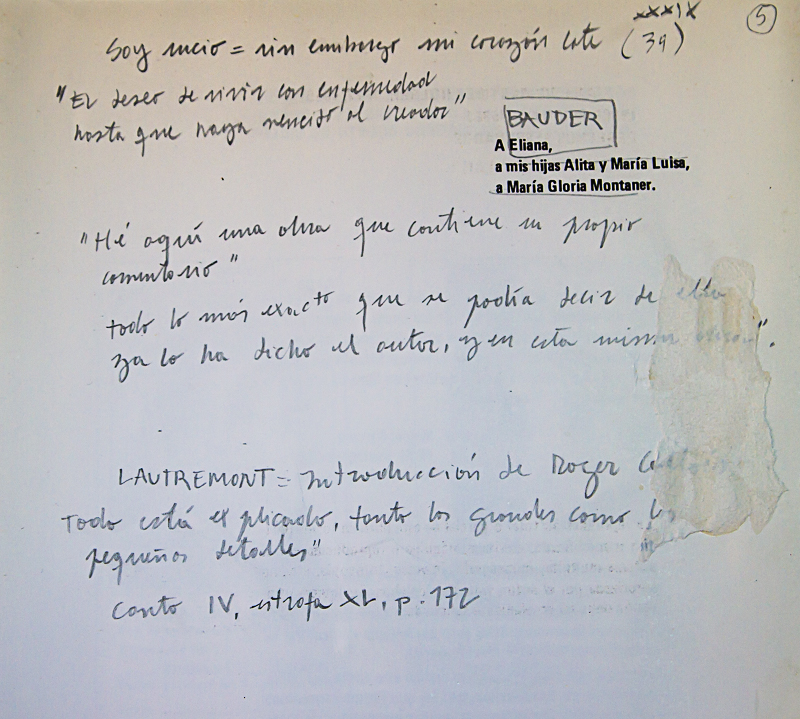 XXXIX
5
Soy sucio = sin embargo mi corazón late (39)
"El deseo de vivir con enfermedad
hasta que haya vencido al creador"
BAUDER
A Eliana,
a mis hijas Alita y María Luisa,
a María Gloria Montaner.
"Hé aquí una obra que contiene su propio
comentario"
todo lo más exacto que se podía decir de ella
ya lo ha dicho el autor, y en esta misma".
LAUTREMONT = introducción de Roger
Todo está explicado, tanto los grandes como los
pequeños detalles"
Canto IV, estrofa XL, p. 172